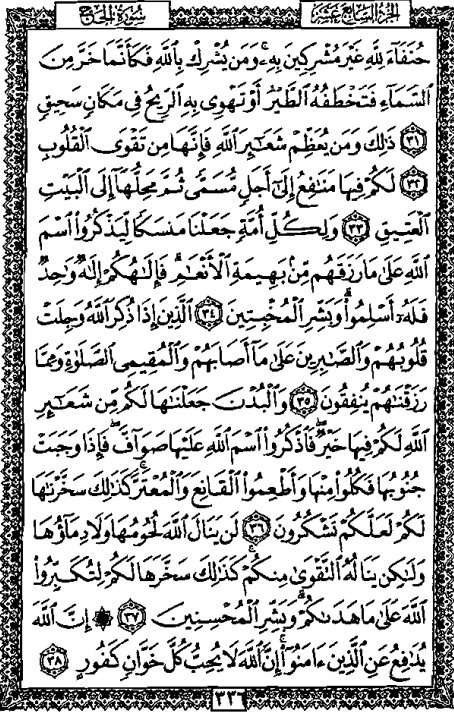 الجزء السابع عشر
سورة الحج
حُنَفَآءَ لِلَّهِ غَيْرَ مُشْرِكِينَ بِهِۦ ۚ وَمَن يُشْرِكْ بِٱللَّهِ فَكَأَنَّمَا خَرَّ مِنَ
ٱلسَّمَآءِ فَتَخْطَفُهُ ٱلطَّيْرُ أَوْ تَهْوِى بِهِ ٱلرِّيحُ فِى مَكَانٍ سَحِيقٍ
٣١ ذَٰلِكَ وَمَن يُعَظِّمْ شَعَـٰٓئِرَ ٱللَّهِ فَإِنَّهَا مِن تَقْوَى ٱلْقُلُوبِ
٣٢ لَكُمْ فِيهَا مَنَـٰفِعُ إِلَىٰٓ أَجَلٍ مُّسَمًّى ثُمَّ مَحِلُّهَآ إِلَى ٱلْبَيْتِ
ٱلْعَتِيقِ ٣٣ وَلِكُلِّ أُمَّةٍ جَعَلْنَا مَنسَكًا لِّيَذْكُرُوا۟ ٱسْمَ
ٱللَّهِ عَلَىٰ مَا رَزَقَهُم مِّنۢ بَهِيمَةِ ٱلْأَنْعَـٰمِ ۗ فَإِلَـٰهُكُمْ إِلَـٰهٌ وَٰحِدٌ
فَلَهُۥٓ أَسْلِمُوا۟ ۗ وَبَشِّرِ ٱلْمُخْبِتِينَ ٣٤ ٱلَّذِينَ إِذَا ذُكِرَ ٱللَّهُ وَجِلَتْ
قُلُوبُهُمْ وَٱلصَّـٰبِرِينَ عَلَىٰ مَآ أَصَابَهُمْ وَٱلْمُقِيمِى ٱلصَّلَوٰةِ وَمِمَّا
رَزَقْنَـٰهُمْ يُنفِقُونَ ٣٥ وَٱلْبُدْنَ جَعَلْنَـٰهَا لَكُم مِّن شَعَـٰٓئِرِ
ٱللَّهِ لَكُمْ فِيهَا خَيْرٌ ۖ فَٱذْكُرُوا۟ ٱسْمَ ٱللَّهِ عَلَيْهَا صَوَآفَّ ۖ فَإِذَا وَجَبَتْ
جُنُوبُهَا فَكُلُوا۟ مِنْهَا وَأَطْعِمُوا۟ ٱلْقَانِعَ وَٱلْمُعْتَرَّ ۚ كَذَٰلِكَ سَخَّرْنَـٰهَا
لَكُمْ لَعَلَّكُمْ تَشْكُرُونَ ٣٦ لَن يَنَالَ ٱللَّهَ لُحُومُهَا وَلَا دِمَآؤُهَا
وَلَـٰكِن يَنَالُهُ ٱلتَّقْوَىٰ مِنكُمْ ۚ كَذَٰلِكَ سَخَّرَهَا لَكُمْ لِتُكَبِّرُوا۟
ٱللَّهَ عَلَىٰ مَا هَدَىٰكُمْ ۗ وَبَشِّرِ ٱلْمُحْسِنِينَ ٣٧ ۞ إِنَّ ٱللَّهَ
يُدَٰفِعُ عَنِ ٱلَّذِينَ ءَامَنُوٓا۟ ۗ إِنَّ ٱللَّهَ لَا يُحِبُّ كُلَّ خَوَّانٍ كَفُورٍ ٣٨
٣٣٦